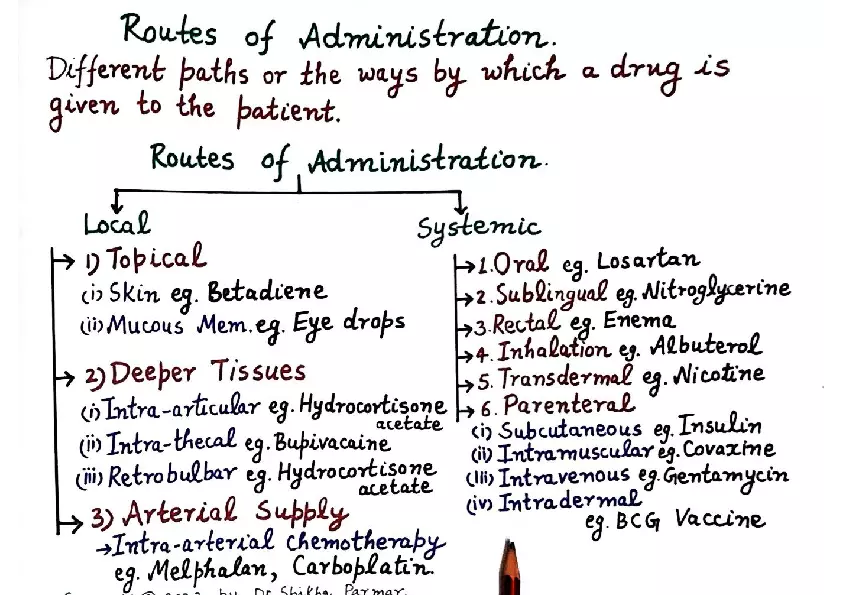 Routes of Administration.
Different paths or the ways by which a drug is
given to the patient.
Routes of Administration.
Local
→ 1) Topical
(i) Skin eg. Betadiene
(ii) Mucous Mem. eg. Eye drops
→ 2) Deeper Tissues
(i) Intra-articular eg. Hydrocortisone
acetate
(ii) Intra-thecal eg. Bupivacaine
(iii) Retrobulbar eg. Hydrocortisone
acetate
→ 3) Arterial Supply
→ Intra-arterial chemotherapy
eg. Melphalan, Carboplatin.
Systemic
→ 1. Oral eg. Losartan
→ 2. Sublingual eg. Nitroglycerine
→ 3. Rectal eg. Enema
→ 4. Inhalation eg. Albuterol
→ 5. Transdermal eg. Nicotine
→ 6. Parenteral
(i) Subcutaneous eg. Insulin
(ii) Intramuscular eg. Covaxine
(iii) Intravenous eg. Gentamycin
(iv) Intradermal
eg. BCG Vaccine
by Dr Shikha Parmar.